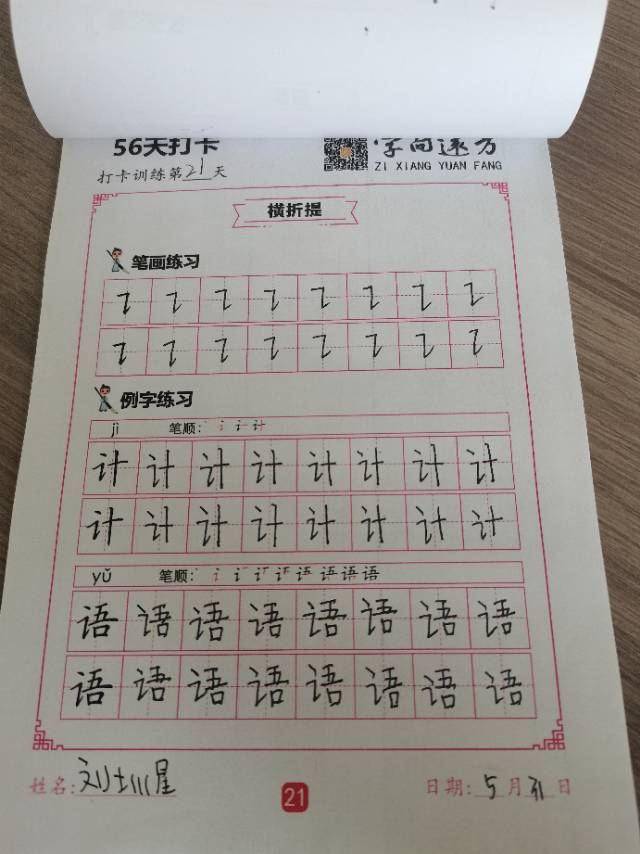 56天打卡
字向速方
ZI XIANG YUAN FANG
打卡训练第21天
横折提
笔画练习
㇊ ㇊ ㇊ ㇊ ㇊ ㇊ ㇊ ㇊
㇊ ㇊ ㇊ ㇊ ㇊ ㇊ ㇊ ㇊
例字练习
jì 笔顺:
计 计 计 计 计 计 计 计
计 计 计 计 计 计 计 计
yǔ 笔顺:
语 语 语 语 语 语 语 语
语 语 语 语 语 语 语 语
姓名:刘圳星
21
日期:5月31日